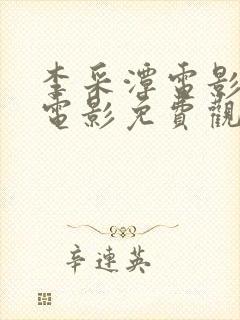 李采潭電影
電影免費觀
辛連英